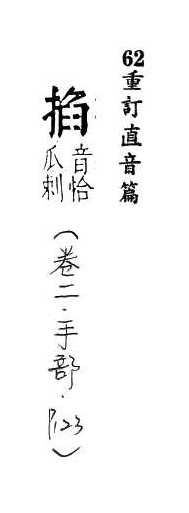 62重訂直音篇
掐
音恰
瓜刺
（卷二．手部．P.123）